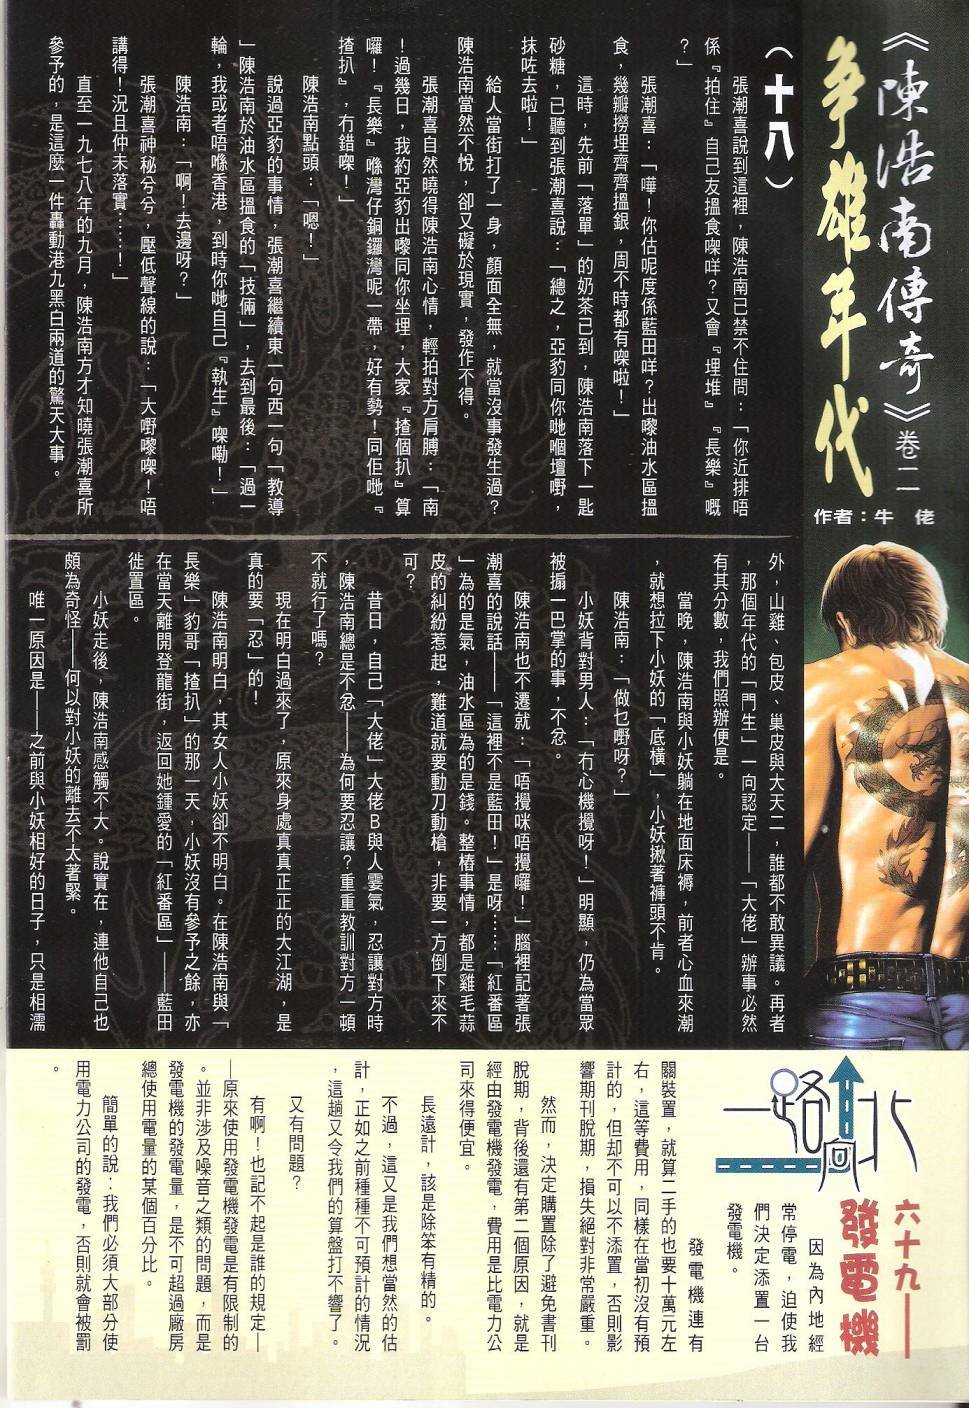 《陳浩南傳奇》卷二
爭雄年代
作者：牛　佬
（十八）
張潮喜說到這裡，陳浩南已禁不住問：「你近排唔
係『拍住』自己友搵食㗎咩？又會『埋堆』『長樂』嘅
？」
張潮喜：「嘩！你估呢度係藍田咩？出嚟油水區搵
食，幾瓣撈埋齊齊搵銀，周不時都有㗎啦！」
這時，先前「落單」的奶茶已到，陳浩南落下一匙
砂糖，已聽到張潮喜說：「總之，亞豹同你哋嗰壇嘢，
抹咗去啦！」
給人當街打了一身，顏面全無，就當沒事發生過？
陳浩南當然不悅，卻又礙於現實，發作不得。
張潮喜自然曉得陳浩南心情，輕拍對方肩膊：「南
！過幾日，我約亞豹出嚟同你坐埋，大家『揸個扒』算
囉！『長樂』喺灣仔銅鑼灣呢一帶，好有勢！同佢哋『
揸扒』，冇錯㗎！」
陳浩南點頭：「嗯！」
說過亞豹的事情，張潮喜繼續東一句西一句「教導
」陳浩南於油水區搵食的「技倆」，去到最後：「過一
輪，我或者唔喺香港，到時你哋自己『執生』㗎嘞！」
陳浩南：「啊！去邊呀？」
張潮喜神秘兮兮，壓低聲線的說：「大嘢嚟㗎！唔
講得！況且仲未落實……！」
直至一九七八年的九月，陳浩南方才知曉張潮喜所
參予的，是這麼一件轟動港九黑白兩道的驚天大事。
外，山雞、包皮、巢皮與大天二，誰都不敢異議。再者
，那個年代的「門生」一向認定——「大佬」辦事必然
有其分數，我們照辦便是。
當晚，陳浩南與小妖躺在地面床褥，前者心血來潮
，就想拉下小妖的「底橫」，小妖揪著褲頭不肯。
陳浩南：「做乜嘢呀？」
小妖背對男人：「冇心機攪呀！」明顯，仍為當眾
被搧一巴掌的事，不忿。
陳浩南也不遷就：「唔攪咪唔攪囉！」腦裡記著張
潮喜的說話——「這裡不是藍田！」是呀……「紅番區
」為的是氣，油水區為的是錢。整樁事情，都是雞毛蒜
皮的糾紛惹起，難道就要動刀動槍，非要一方倒下來不
可？
昔日，自己「大佬」大佬Ｂ與人霎氣，忍讓對方時
，陳浩南總是不忿——為何要忍讓？重重教訓對方一頓
不就行了嗎？
現在明白過來了，原來身處真真正正的大江湖，是
真的要「忍」的！
陳浩南明白，其女人小妖卻不明白。在陳浩南與「
長樂」豹哥「揸扒」的那一天，小妖沒有參予之餘，亦
在當天離開登龍街，返回她鍾愛的「紅番區」——藍田
徙置區。
小妖走後，陳浩南感觸不大。說實在，連他自己也
頗為奇怪——何以對小妖的離去不太著緊。
唯一原因是——之前與小妖相好的日子，只是相濡
一路向北
六十九——
發電機
因為內地經
常停電，迫使我
們決定添置一台
發電機。
發電機連有
關裝置，就算二手的也要十萬元左
右，這等費用，同樣在當初沒有預
計的，但却不可以不添置，否則影
響期刊脫期，損失絕對非常嚴重。
然而，決定購置除了避免書刊
脫期，背後還有第二個原因，就是
經由發電機發電，費用是比電力公
司來得便宜。
長遠計，該是除笨有精的。
不過，這又是我們想當然的估
計，正如之前種種不可預計的情況
，這趟又令我們的算盤打不響了。
又有問題？
有啊！也記不起是誰的規定—
—原來使用發電機發電是有限制的
。並非涉及噪音之類的問題，而是
發電機的發電量，是不可超過廠房
總使用電量的某個百分比。
簡單的說：我們必須大部分使
用電力公司的發電，否則就會被罰
。